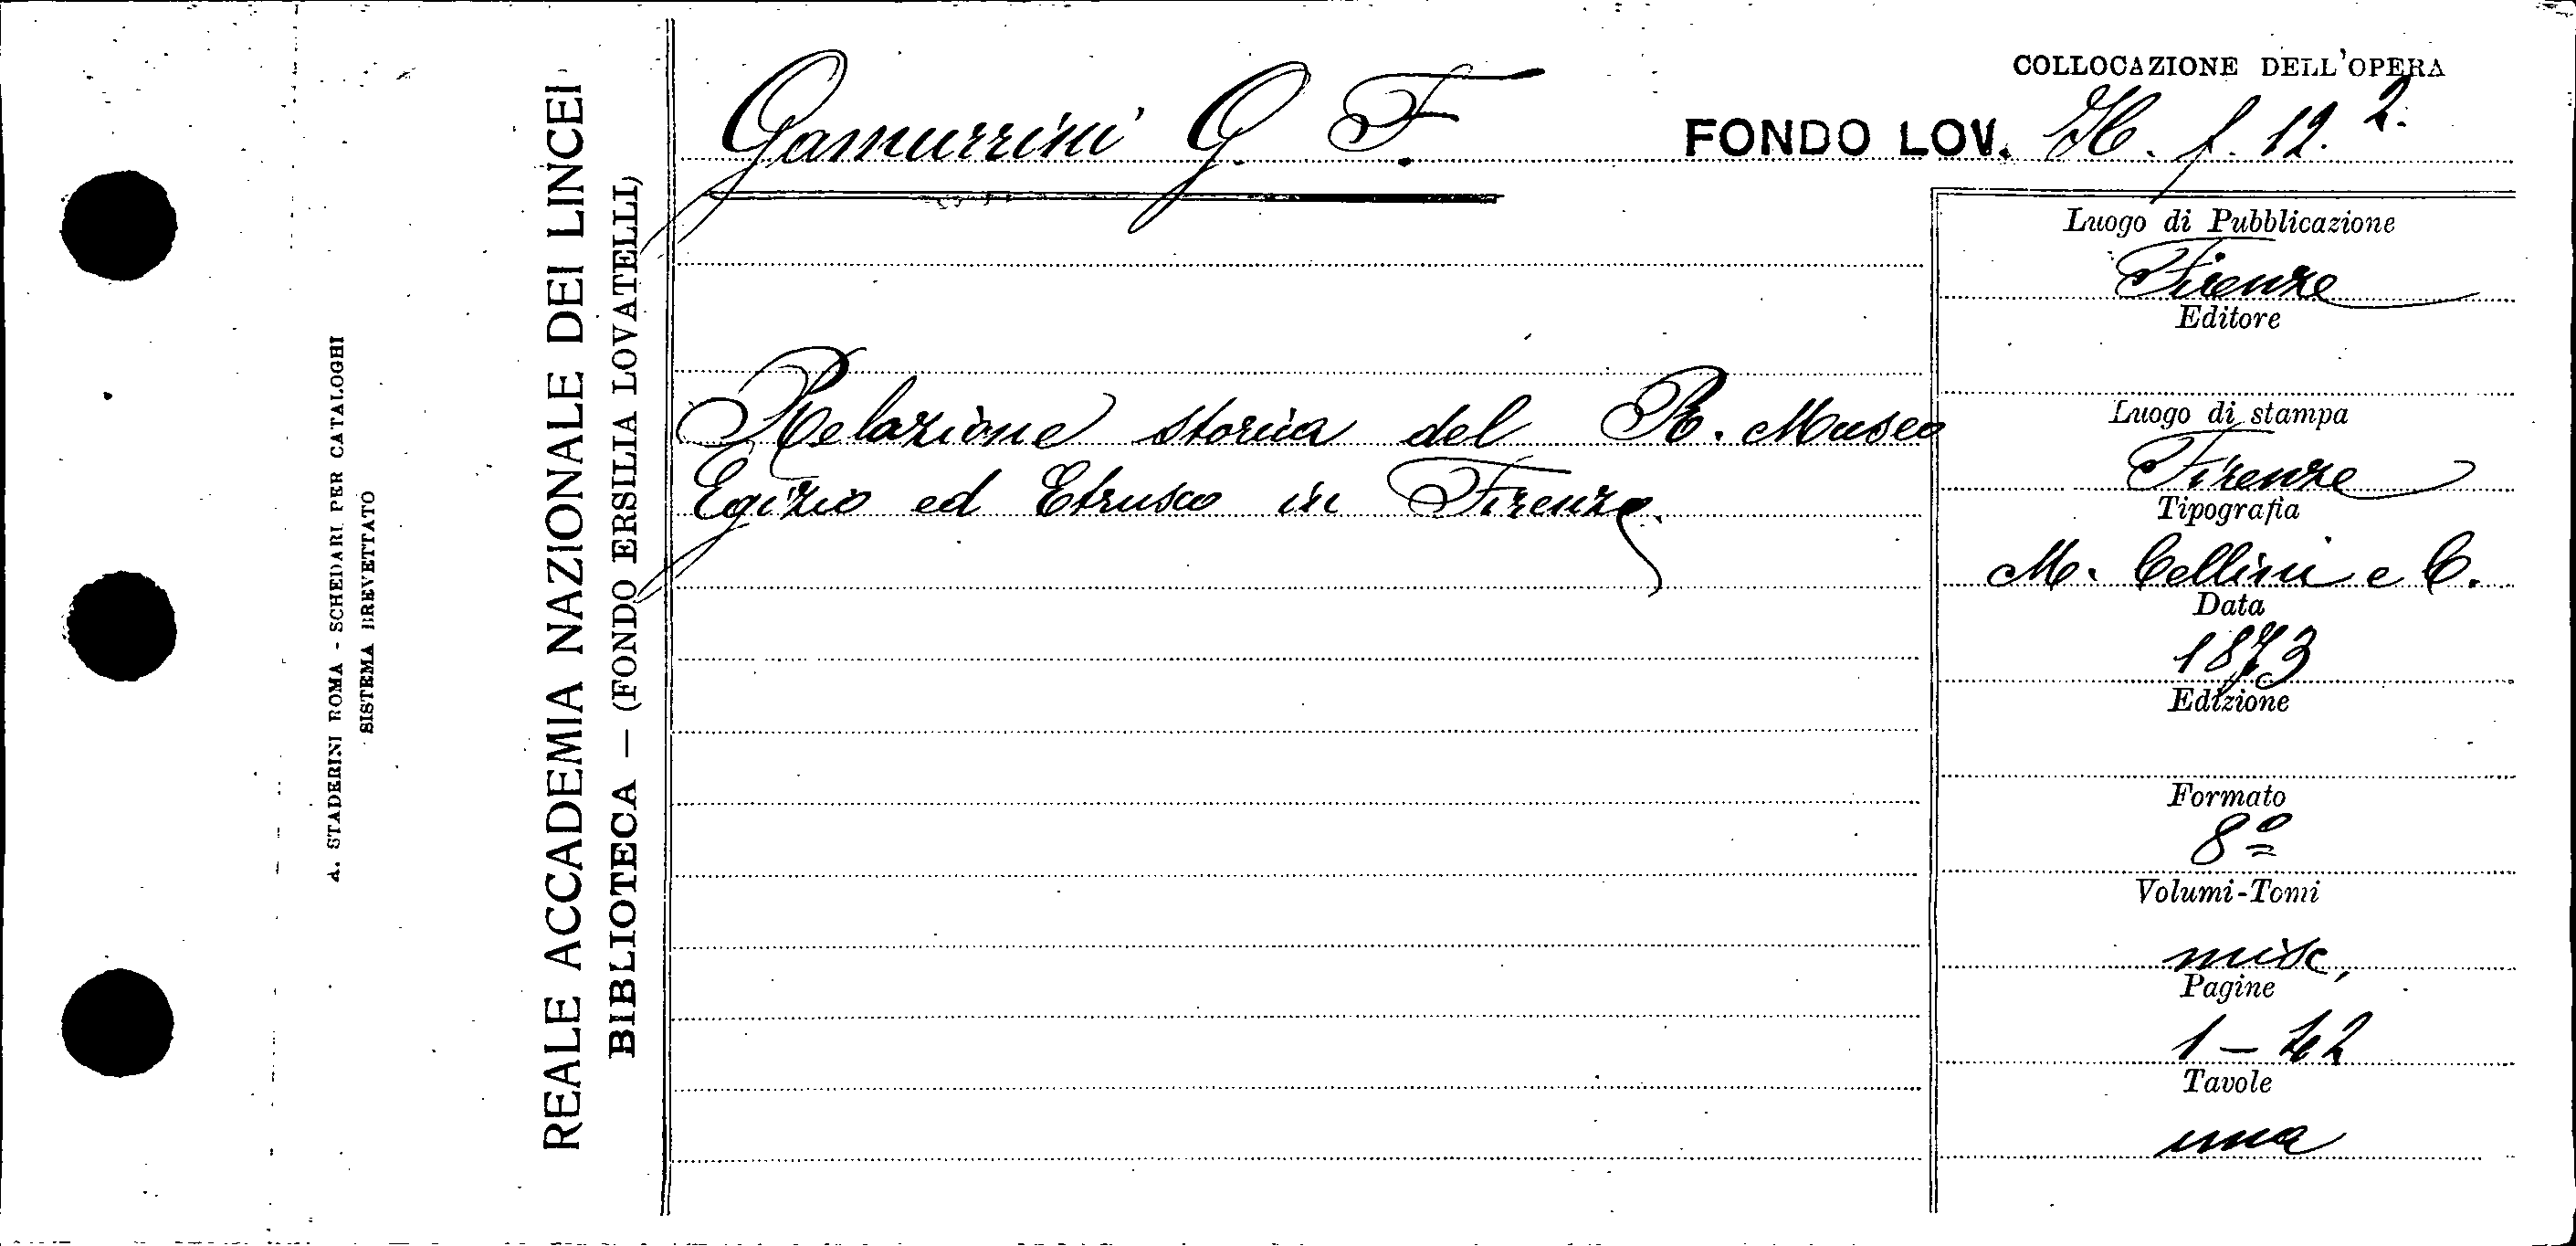 A. STADERINI ROMA - SCHEDARI PER CATALOGHI
SISTEMA BREVETTATO
REALE ACCADEMIA NAZIONALE DEI LINCEI
BIBLIOTECA — (FONDO ERSILIA LOVATELLI)
Gamurrini G. F.
Relazione storica del R. Museo
Egizio ed Etrusco in Firenze.
COLLOCAZIONE DELL'OPERA
FONDO LOV. H. f. 12. 2.
Luogo di Pubblicazione
Firenze
Editore
Luogo di stampa
Firenze
Tipografia
M. Cellini e C.
Data
1873
Edizione
Formato
8º
Volumi-Tomi
misc.
Pagine
1 — 42
Tavole
una